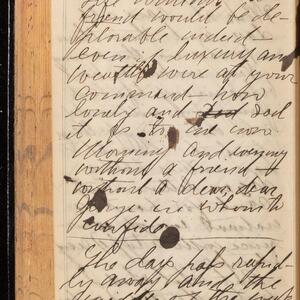 friend would be de-
plorable indeed
even luxury and
wealth were at your
command how
lonely and sad
it is to me now
Morning and evening
without a friend —
without a dear, dear
in whom to
confide.
The days pass rapid-
ly away and the